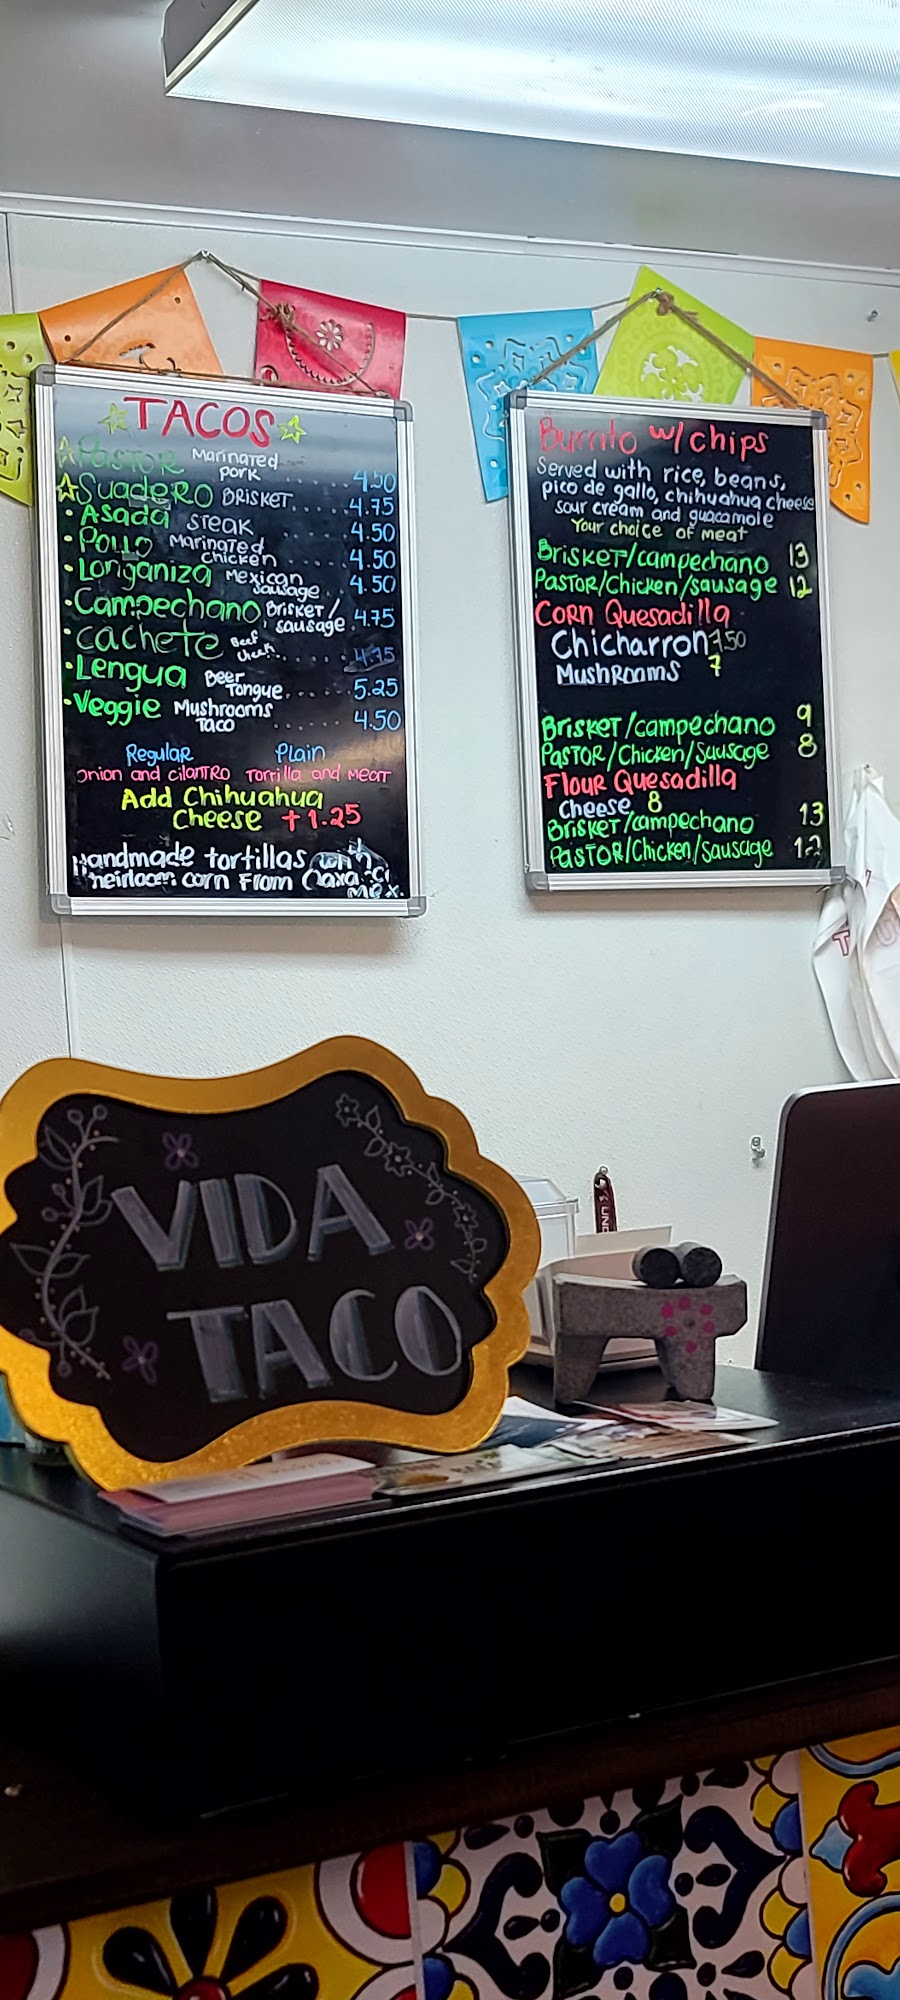 TACOS
Pastor Marinated pork ..... 4.50
Suadero BRISKET ..... 4.75
• Asada steak .. 4.50
• Pollo Marinated chicken ..... 4.50
• Longaniza Mexican sausage .. 4.50
• Campechano Brisket/ sausage . 4.75
• Cachete Beef cheek ..... 4.75
• Lengua Beer Tongue ..... 5.25
• Veggie Mushrooms Taco ..... 4.50
Regular Plain
onion and cilantro Tortilla and Meat
Add Chihuahua
Cheese +1.25
Handmade tortillas with
heirloom corn From Oaxaca
Mex.
Burrito w/chips
Served with rice, beans,
pico de gallo, chihuahua cheese
sour cream and guacamole
Your choice of meat
Brisket/campechano 13
Pastor/Chicken/sausage 12
Corn Quesadilla
Chicharron 7.50
Mushrooms 7
Brisket/campechano 9
Pastor/Chicken/Sausage 8
Flour Quesadilla
Cheese 8
Brisket/campechano 13
Pastor/Chicken/Sausage 12
VIDA
TACO